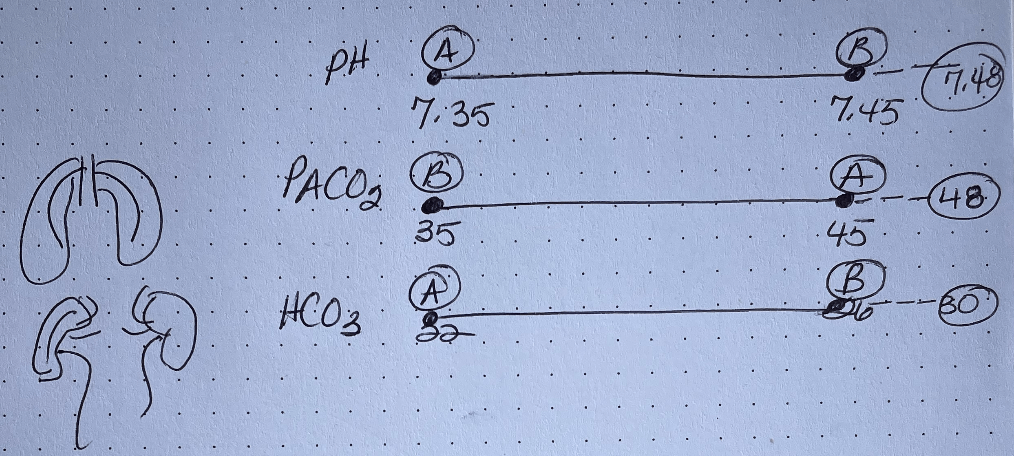 A B
PH 7.48
7.35 7.45
PACO2 B A 48
35 45
A B
HCO3 30
32 26